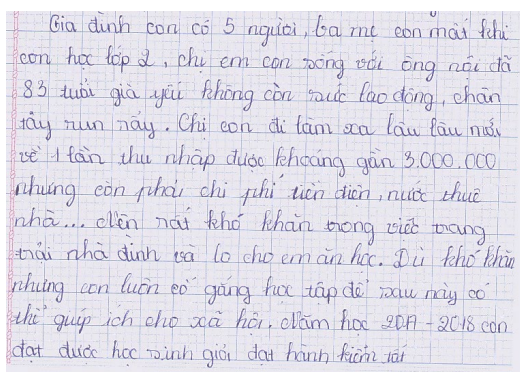 Gia đình con có 5 người, ba mẹ con mất khi
con học lớp 2, chị em con sống với ông nội đã
83 tuổi già yếu không còn sức lao động, chân
tay run rẩy. Chị con đi làm xa lâu lâu mới
về 1 lần thu nhập được khoảng gần 3.000.000
nhưng còn phải chi phí tiền điện, nước thuê
nhà... Nên rất khó khăn trong việc trang
trải nhà đình và lo cho em ăn học. Dù khó khăn
nhưng con luôn cố gắng học tập để sau này có
thể giúp ích cho xã hội. Năm học 2017 - 2018 con
đạt được học sinh giỏi đạt hành kiểm tốt